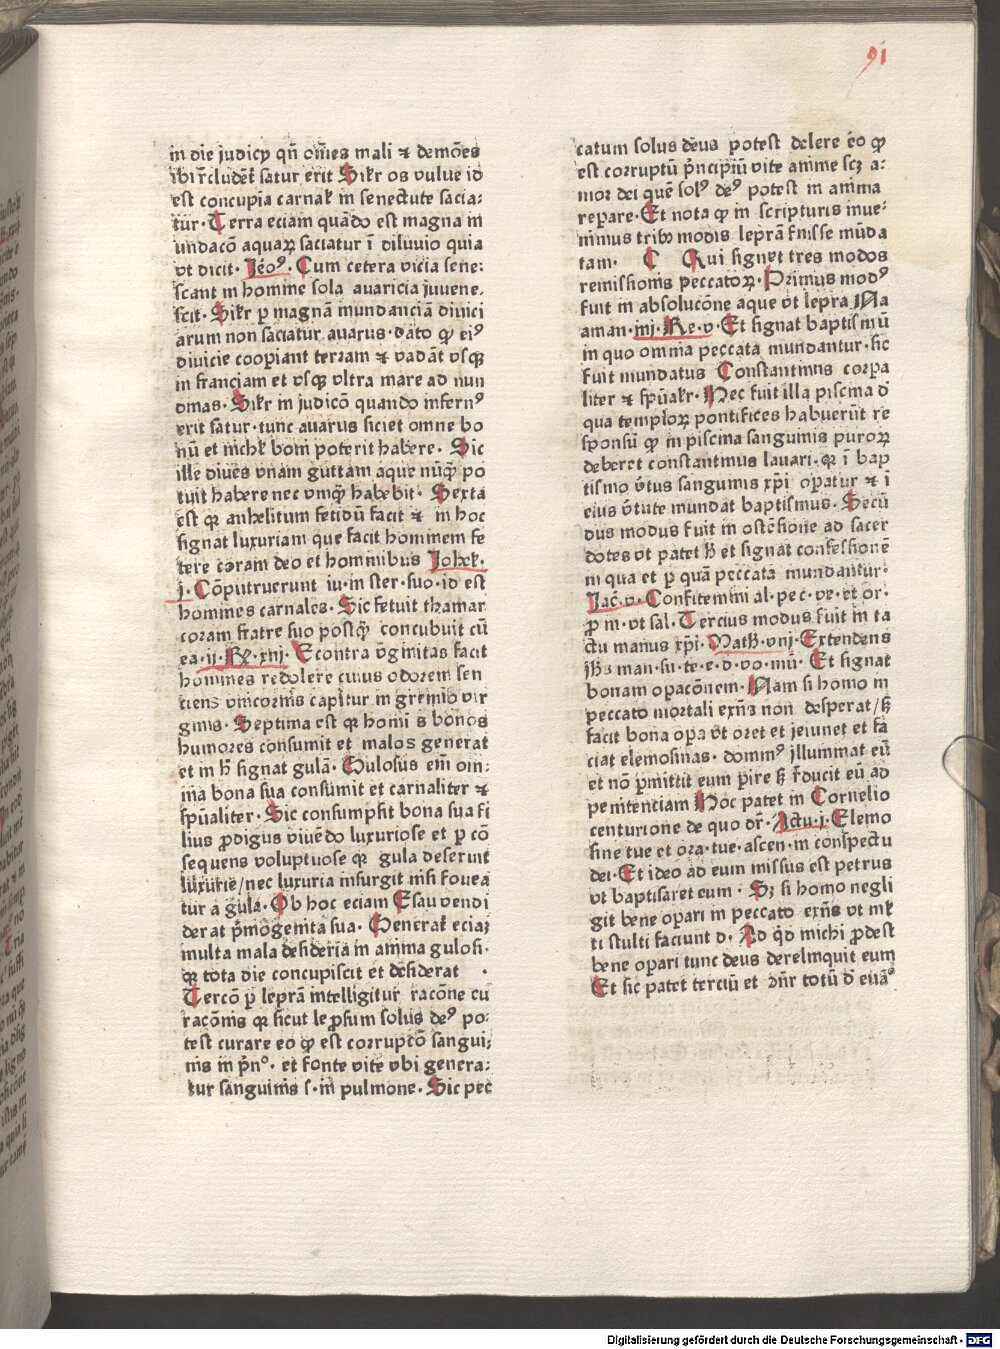 91
in die judicÿ qñ om̃es mali ⁊ demões
ibi r̃cludẽt᷒ satur erit Sil'r os vulue id
est concupĩa carnal' in senectute sacia-
tur· Terra eciam quãdo est magna in
undacõ aquaꝝ saciatur ĩ diluuio quia
vt dicit· Jeõꝰ· Cum cetera vicia sene:
scant in homine sola avaricia juvene,
scit· Sil'r ꝑ magnã mundanciã divici
arum non saciatur avarus· dato ꝙ eiꝰ
divicie coopiant terram ⁊ vadãt vsqꝫ
in franciam et vsqꝫ vltra mare ad nun
dinas· Sil'r in judicõ quando infernꝰ
erit satur· tunc avarus siciet omne bo
nũ et nichil' boni poterit habere· Sic
ille diues vnam guttam aque nũqꝫ po
tuit habere nec vmqꝫ habebit· Sexta
est qꝛ anhelitum fetidũ facit ⁊ in hoc
signat luxuriam que facit hominem fe
tere coram deo et hominibus Johel·
j· Cõputruerunt iu·in ster·suo·id est
homines carnales· Sic fetuit thamar
coram fratre suo postqꝫ concubuit cũ
ea·ij·Rꝫ·xiij· Econtra v̓ginitas facit
homines redolere cuius odorem sen
ciens vnicornis capit̃ur in gremio vir
ginis· Septima est qꝛ homi s bonos
humores consumit et malos generat
et in h̃ signat gulã· Gulosus em̃ om:
nia bona sua consumit et carnaliter ⁊
sp̃ualiter· Sic consumpsit bona sua fi
lius ꝓdigus viuẽdo luxuriose et ꝑ cõ
sequens voluptuose qꝛ gula deseruit
luxurie/nec luxuria insurgit nisi fovea
tur a gula· Ob hoc eciam Esau vendi
derat p̃mogenita sua· Generat eciaꝫ
multa mala desideria in anima gulosi·
qꝛ tota die concupiscit et desiderat ·
Tercõ ꝑ leprã intelligitur racõne cu
racõnis qꝛ sicut leꝓsum solus deꝰ po:
test curare eo ꝙ est corrupcõ sangui:
nis in p̃nº· et fonte vite vbi genera:
tur sanguinis s·in pulmone· Sic pec
catum solus deus potest delere eo ꝙ
est corruptũ p̃ncipiũ vite anime scꝫ a:
mor dei quẽ solꝰ deꝰ potest in anima
reparare· Et nota ꝙ in scripturis inue:
nimus tribꝰ modis leprã fuisse mũda
tam· C Qui signet tres modos
remissionis peccatoꝝ· Primus modꝰ
fuit in absolucõne aque vt lepra Na
aman·iiij·Re·v· Et signat baptismũ
in quo omnia peccata mundantur· sic
fuit mundatus Constantinus corpa
liter ⁊ sp̃ual'r· Nec fuit illa piscina d̓
qua temploꝝ pontifices habuerũt re
sponsũ ꝙ in piscina sanguinis puroꝝ
deberet constantinus lauari· qꝛ ĩ bap
tismo v̓tus sanguinis xp̃i op̃atur ⁊ ĩ
eius v̓tute mundat baptismus· Secũ
dus modus fuit in ostẽsione ad sacer
dotes vt patet h̃ et signat confessionẽ
in qua et ꝑ quã peccata mundantur·
Jac̃·v· Confitemini al·pec·ve·et or·
ꝓ in·vt sal· Tercius modus fuit in ta
ctu manus xp̃i· Math·viij· Extendens
ih̃s man·su·te·e·d·vo·mũ· Et signat
bonam opacõnem· Nam si homo in
peccato mortali exñs non desperat/sꝫ
facit bona opa vt oret et jeiunet et fa
ciat elemosinas· dominꝰ jlluminat eũ
et nõ p̃mittit eum ꝑire sꝫ r̃ducit eũ ad
penitenciam Hoc patet in Cornelio
centurione de quo dr̃· Actũ·j· Elemo
sine tue et ora·tue·ascen·in conspectu
dei· Et ideo ad eum missus est petrus
vt baptisaret eum· Sꝫ si homo negli
git bene opari in peccato exñs vt ml'
ti stulti faciunt d· Ad qd̓ michi ꝓdest
bene opari tunc deus derelinquit eum
Et sic patet terciũ et ꝯñr totũ d̓ euãº
Digitalisierung gefördert durch die Deutsche Forschungsgemeinschaft · DFG